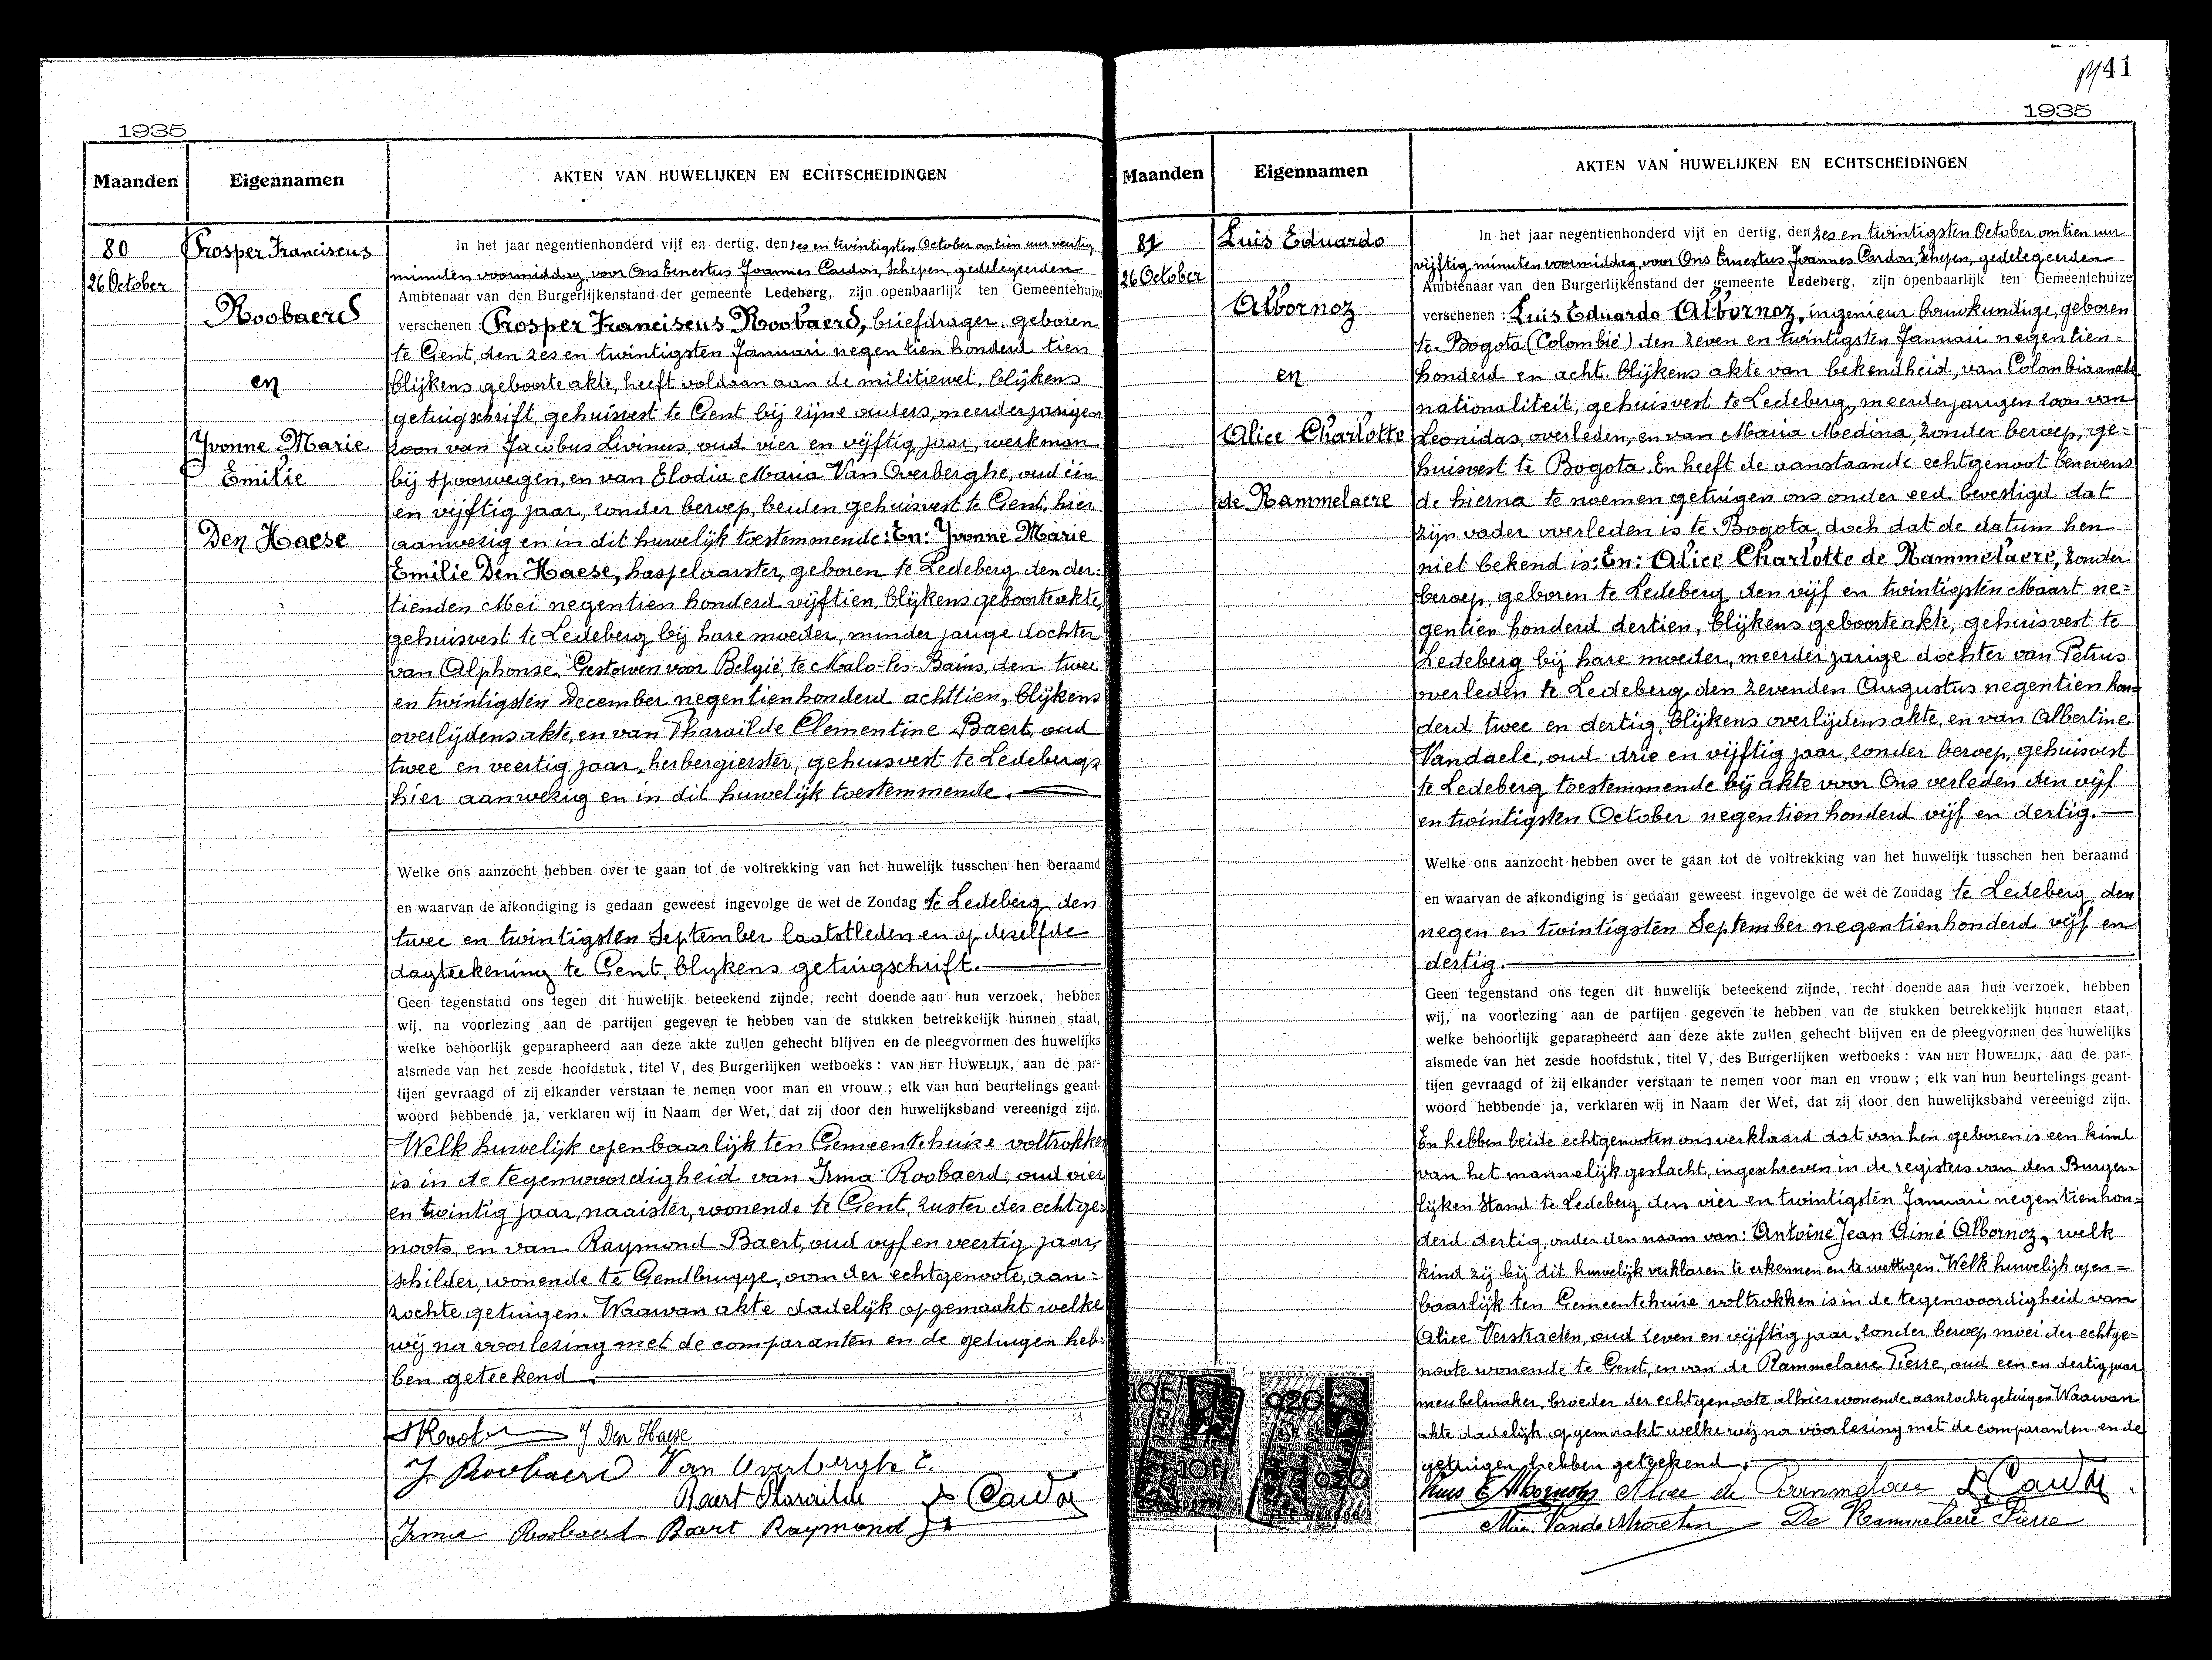 1935
Maanden Eigennamen AKTEN VAN HUWELIJKEN EN ECHTSCHEIDINGEN
80
26 October
Prosper Franciscus
Roobaerd
en
Yvonne Marie
Emilie
Den Haese
In het jaar negentienhonderd vijf en dertig, den zes en twintigsten October om tien uur veertig
minuten voormiddag, voor Ons Ernestus Joannes Cardon, Schepen, gedelegeerden
Ambtenaar van den Burgerlijkenstand der gemeente Ledeberg, zijn openbaarlijk ten Gemeentehuize
verschenen : Prosper Franciscus Roobaerd, briefdrager, geboren
te Gent, den zes en twintigsten Januari negentien honderd tien
blijkens geboorteakte, heeft voldaan aan de militiewet, blijkens
getuigschrift, gehuisvest te Gent bij zijne ouders, meerderjarigen
zoon van Jacobus Livinus, oud vier en vijftig jaar, werkman
bij spoorwegen, en van Elodia Maria Van Overberghe, oud één
en vijftig jaar, zonder beroep, beiden gehuisvest te Gent, hier
aanwezig en in dit huwelijk toestemmende: En: Yvonne Marie
Emilie Den Haese, haspelaarster, geboren te Ledeberg den der=
tienden Mei negentien honderd vijftien, blijkens geboorteakte,
gehuisvest te Ledeberg bij hare moeder, minderjarige dochter
van Alphonse, "Gestorven voor België, te Malo-les-Bains, den twee
en twintigsten December negentienhonderd achttien, blijkens
overlijdensakte, en van Tharailde Clementine Baert, oud
twee en veertig jaar, herbergierster, gehuisvest te Ledeberg,
hier aanwezig en in dit huwelijk toestemmende.
Welke ons aanzocht hebben over te gaan tot de voltrekking van het huwelijk tusschen hen beraamd
en waarvan de afkondiging is gedaan geweest ingevolge de wet de Zondag te Ledeberg, den
twee en twintigsten September laatstleden en op dezelfde
dagteekening te Gent, blijkens getuigschrift.
Geen tegenstand ons tegen dit huwelijk beteekend zijnde, recht doende aan hun verzoek, hebben
wij, na voorlezing aan de partijen gegeven te hebben van de stukken betrekkelijk hunnen staat,
welke behoorlijk geparapheerd aan deze akte zullen gehecht blijven en de pleegvormen des huwelijks
alsmede van het zesde hoofdstuk, titel V, des Burgerlijken wetboeks : VAN HET HUWELIJK, aan de par-
tijen gevraagd of zij elkander verstaan te nemen voor man en vrouw ; elk van hun beurtelings geant-
woord hebbende ja, verklaren wij in Naam der Wet, dat zij door den huwelijksband vereenigd zijn.
Welk huwelijk openbaarlijk ten Gemeentehuize voltrokken
is in de tegenwoordigheid van Irma Roobaerd, oud vier
en twintig jaar, naaister, wonende te Gent, zuster des echtge=
noots, en van Raymond Baert, oud vijf en veertig jaar,
schilder, wonende te Gendbrugge, oom der echtgenoote, aan=
zochte getuigen. Waarvan akte dadelijk opgemaakt welke
wij na voorlezing met de comparanten en de getuigen heb=
ben geteekend.
Y Den Haese
J. Roobaerd Van Overberghe E.
Baert Tharailde Cardon
Irma Roobaerd Baert Raymond
41
1935
Maanden Eigennamen AKTEN VAN HUWELIJKEN EN ECHTSCHEIDINGEN
81
26 October
Luis Eduardo
Albornoz
en
Alice Charlotte
de Rammelaere
In het jaar negentienhonderd vijf en dertig, den zes en twintigsten October om tien uur
vijftig minuten voormiddag, voor Ons Ernestus Joannes Cardon, Schepen, gedelegeerden
Ambtenaar van den Burgerlijkenstand der gemeente Ledeberg, zijn openbaarlijk ten Gemeentehuize
verschenen : Luis Eduardo Albornoz, ingenieur bouwkundige, geboren
te Bogota (Colombië) den zeven en twintigsten Januari negentien=
honderd en acht, blijkens akte van bekendheid, van Colombiaansche
nationaliteit, gehuisvest te Ledeberg, meerderjarigen zoon van
Leonidas, overleden, en van Maria Medina, zonder beroep, ge=
huisvest te Bogota. En heeft de aanstaande echtgenoot benevens
de hierna te noemen getuigen ons onder eed bevestigd dat
zijn vader overleden is te Bogota, doch dat de datum hen
niet bekend is: En: Alice Charlotte de Rammelaere, zonder
beroep, geboren te Ledeberg, den vijf en twintigsten Maart ne=
gentien honderd dertien, blijkens geboorteakte, gehuisvest te
Ledeberg bij hare moeder, meerderjarige dochter van Petrus
overleden te Ledeberg den zevenden Augustus negentien hon=
derd twee en dertig, blijkens overlijdensakte, en van Albertine
Vandaele, oud drie en vijftig jaar, zonder beroep, gehuisvest
te Ledeberg toestemmende bij akte voor Ons verleden den vijf
en twintigsten October negentien honderd vijf en dertig.
Welke ons aanzocht hebben over te gaan tot de voltrekking van het huwelijk tusschen hen beraamd
en waarvan de afkondiging is gedaan geweest ingevolge de wet de Zondag te Ledeberg, den
negen en twintigsten September negentienhonderd vijf en
dertig.
Geen tegenstand ons tegen dit huwelijk beteekend zijnde, recht doende aan hun verzoek, hebben
wij, na voorlezing aan de partijen gegeven te hebben van de stukken betrekkelijk hunnen staat,
welke behoorlijk geparapheerd aan deze akte zullen gehecht blijven en de pleegvormen des huwelijks
alsmede van het zesde hoofdstuk, titel V, des Burgerlijken wetboeks : VAN HET HUWELIJK, aan de par-
tijen gevraagd of zij elkander verstaan te nemen voor man en vrouw ; elk van hun beurtelings geant-
woord hebbende ja, verklaren wij in Naam der Wet, dat zij door den huwelijksband vereenigd zijn.
En hebben beide echtgenooten ons verklaard dat van hen geboren is een kind
van het mannelijk geslacht, ingeschreven in de registers van den Burger=
lijken Stand te Ledeberg den vier en twintigsten Januari negentienhon=
derd dertig, onder den naam van: Antoine Jean Aimé Albornoz, welk
kind zij bij dit huwelijk verklaren te erkennen en te wettigen. Welk huwelijk open=
baarlijk ten Gemeentehuize voltrokken is in de tegenwoordigheid van
Alice Verstraeten, oud zeven en vijftig jaar, zonder beroep moei der echtge=
noote wonende te Gent, en van de Rammelaere Pierre, oud een en dertig jaar
meubelmaker, broeder der echtgenoote alhier wonende, aanzochte getuigen Waarvan
akte dadelijk opgemaakt welke wij na voorlezing met de comparanten en de
getuigen hebben geteekend.
Luis E Albornoz Alice de Rammelaere Cardon
De Rammelaere Pierre